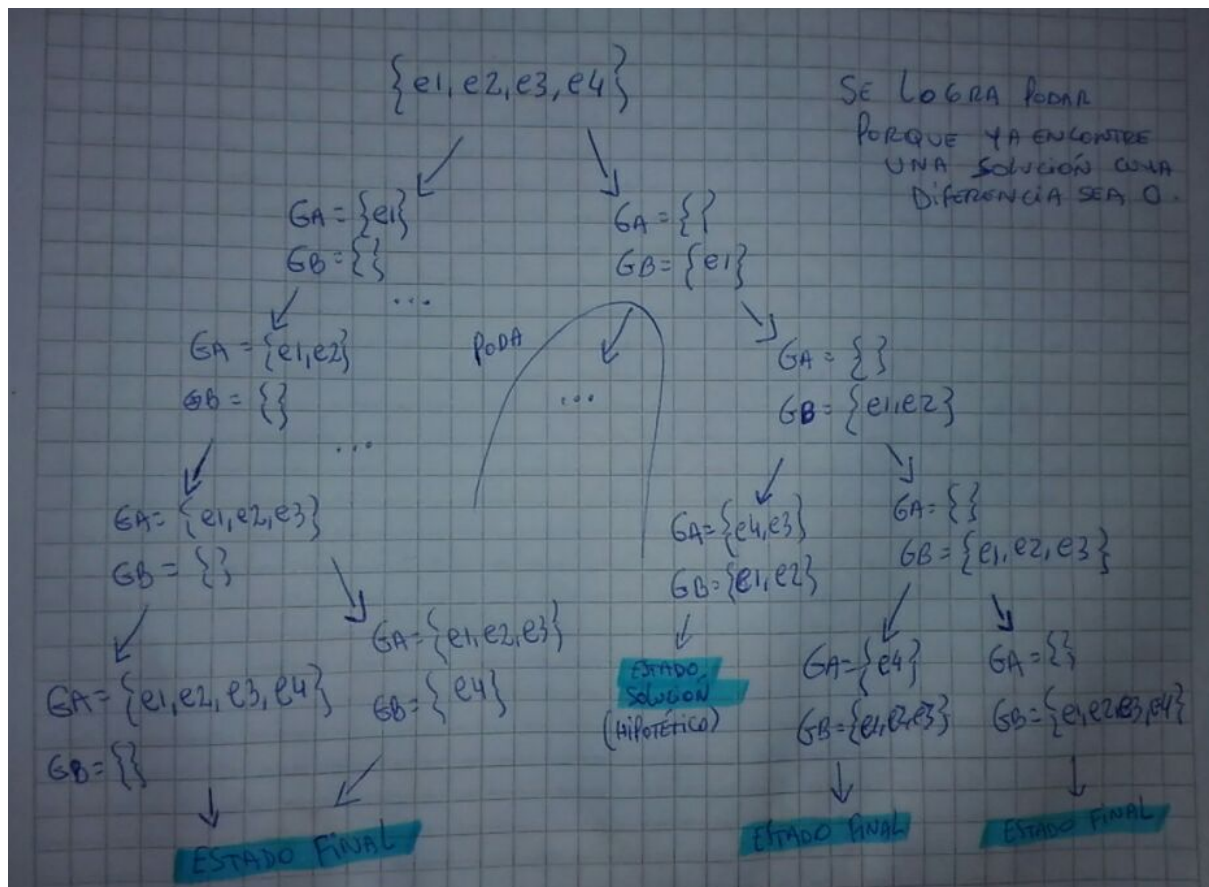 {e1, e2, e3, e4}
SE LOGRA PODAR
PORQUE YA ENCONTRE
UNA SOLUCIÓN CUYA
DIFERENCIA SEA 0.
GA = {e1}
GB = {}
GA = {}
GB = {e1}
...
GA = {e1, e2}
GB = {}
PODA
...
GA = {}
GB = {e1, e2}
...
GA = {e1, e2, e3}
GB = {}
GA = {e4, e3}
GB = {e1, e2}
GA = {}
GB = {e1, e2, e3}
GA = {e1, e2, e3, e4}
GB = {}
GA = {e1, e2, e3}
GB = {e4}
ESTADO
SOLUCIÓN
(HIPOTÉTICO)
GA = {e4}
GB = {e1, e2, e3}
GA = {}
GB = {e1, e2, e3, e4}
ESTADO FINAL
ESTADO FINAL
ESTADO FINAL